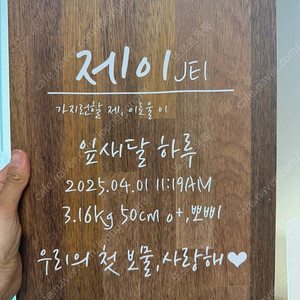 제이 JEI
가지런할 제, 이로울 이
잎새달 하루
2025.04.01 11:19AM
3.16kg 50cm o+, 뽀삐
우리의 첫 보물, 사랑해♥